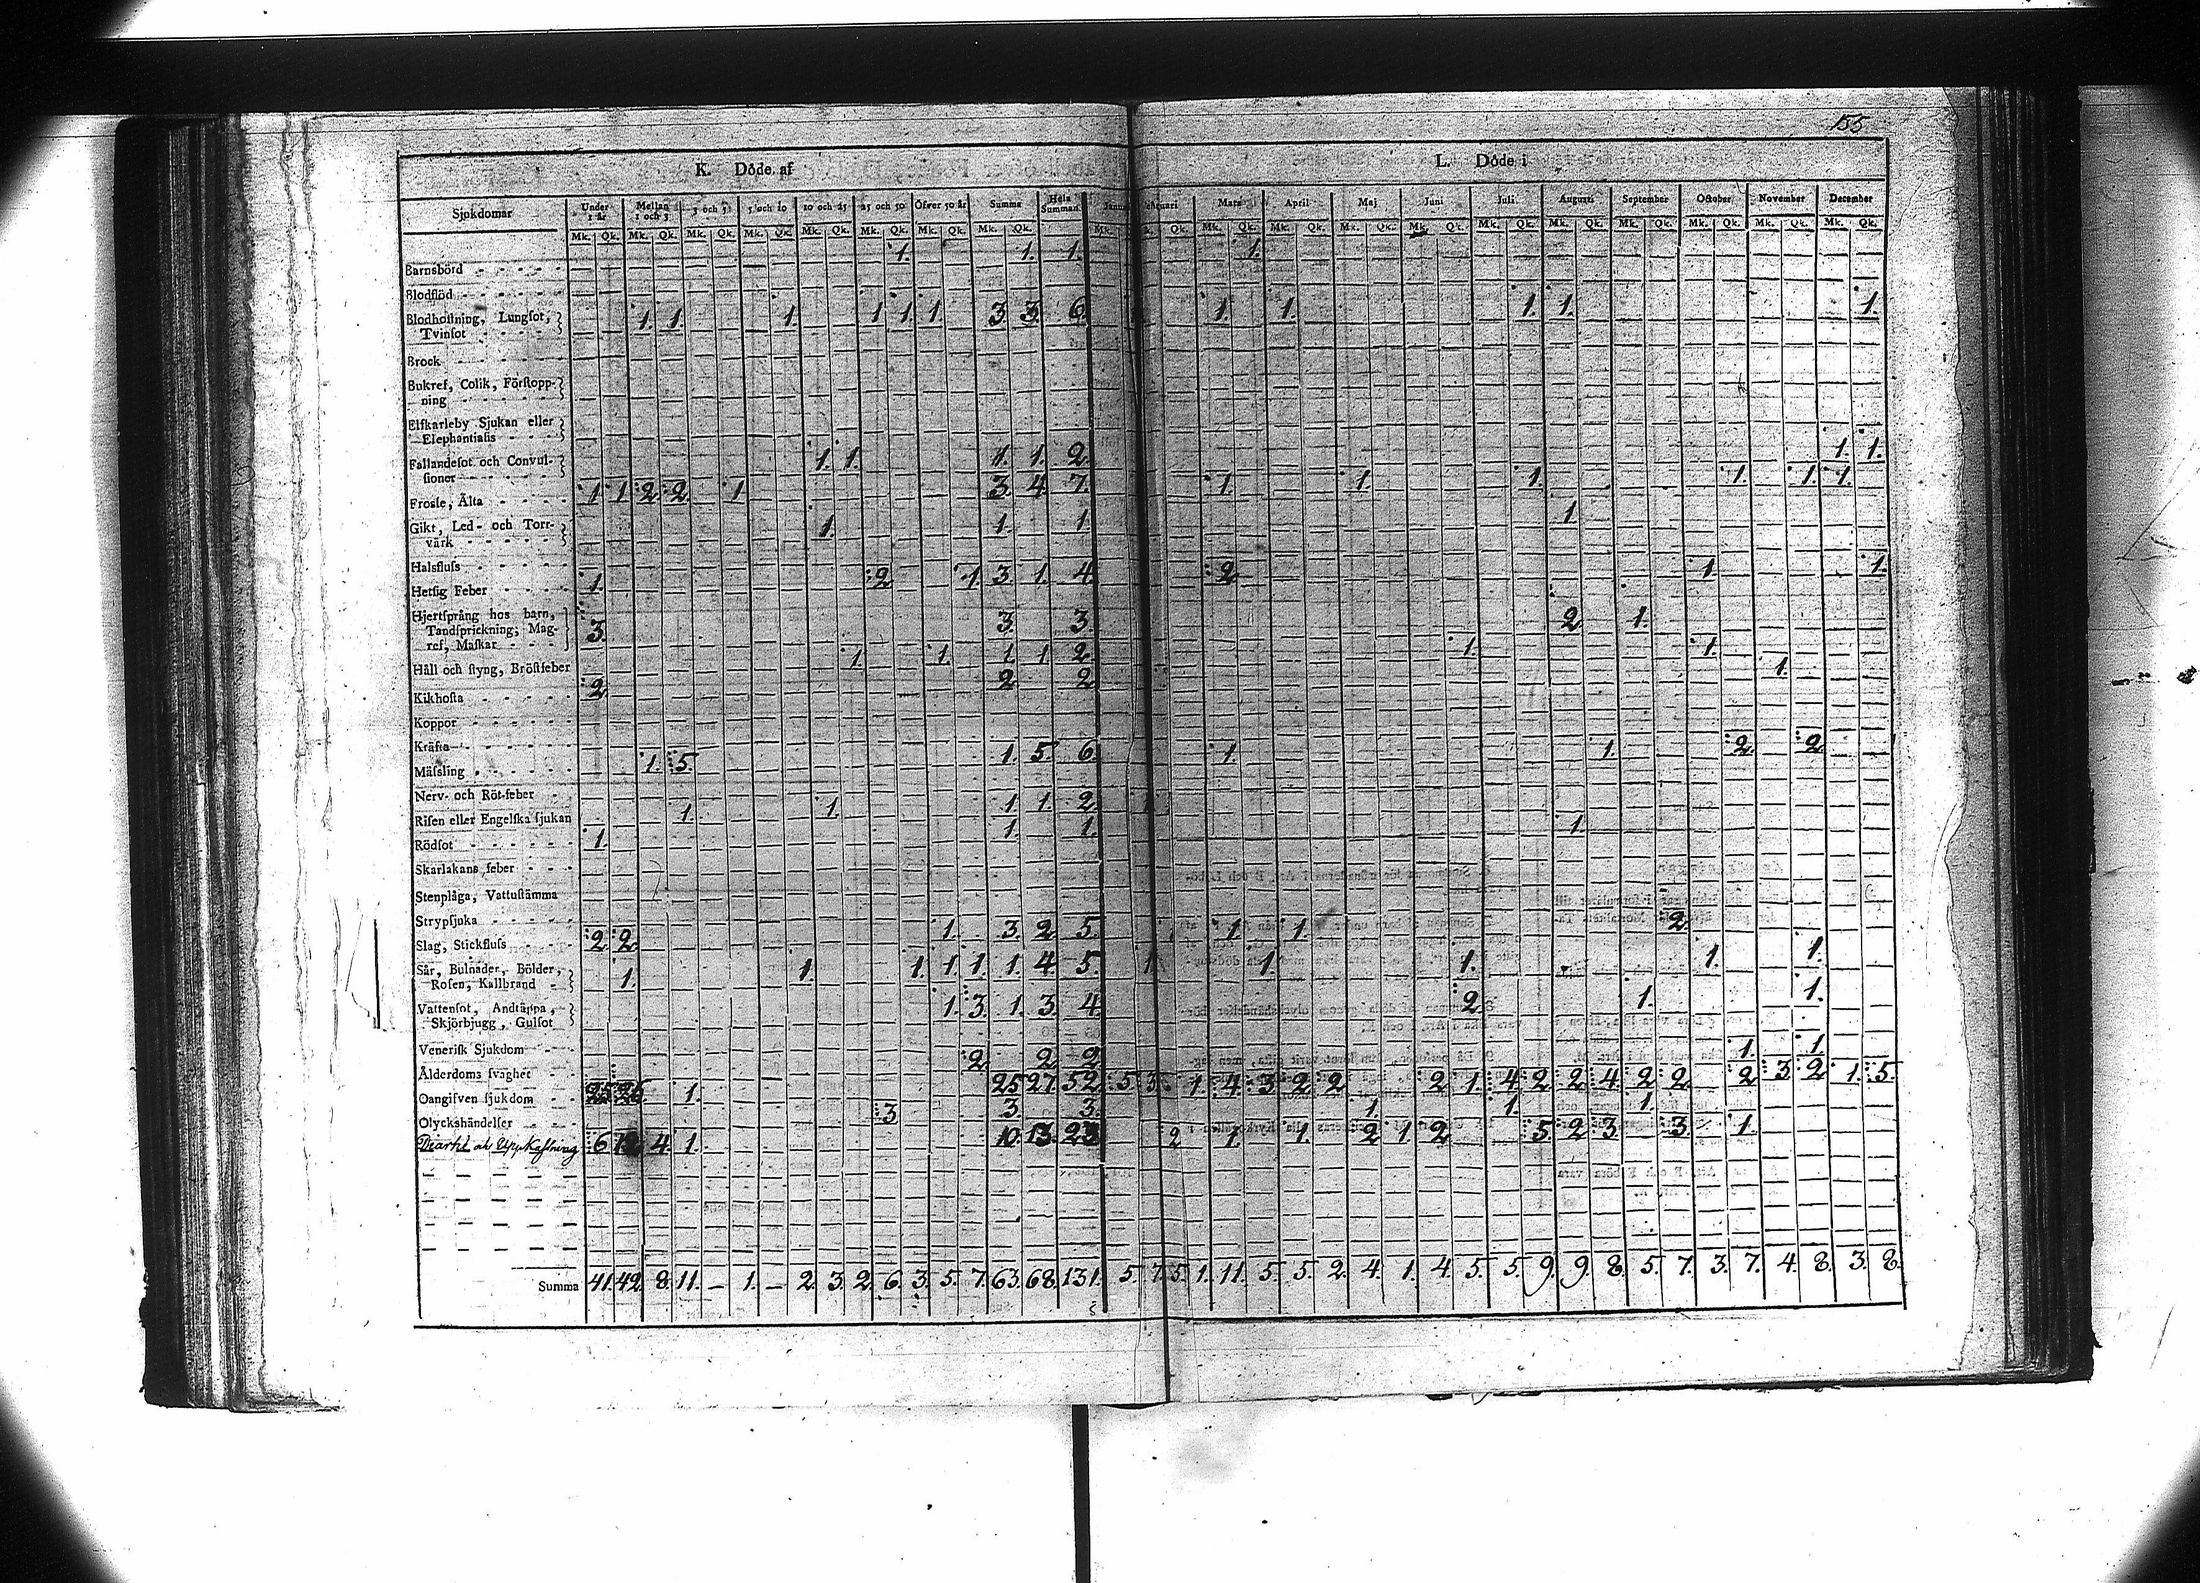 155
K. Döde af L. Döde i
Sjukdomar Under 1 år Mellan 1 och 3 3 och 5 5 och 10 10 och 25 25 och 50 Öfver 50 år Summa Hela Summan Mars April Maj Juni Juli Augusti September October November December
Mk. Qk. Mk. Qk. Mk. Qk. Mk. Qk. Mk. Qk. Mk. Qk. Mk. Qk. Mk. Qk. Mk. Qk. Mk. Qk. Mk. Qk. Mk. Qk. Mk. Qk. Mk. Qk. Mk. Qk. Mk. Qk. Mk. Qk. Mk. Qk. Mk. Qk.
Barnsbörd 1. 1. 1. 1.
Blodflöd
Blodhostning, Lungsot, 1. 1. 1. 1 1. 1. 3. 3. 6. 1. 1. 1. 1. 1.
Tvinsot
Brock
Bukref, Colik, Förstopp-
ning
Elfkarleby Sjukan eller
Elephantiasis
Fallandesot och Convul- 1. 1. 1. 1. 2. 1. 1.
sioner
Frosse, Älta 1 1 2 2 1 3. 4. 7. 1. 1. 1. 1. 1. 1.
Gikt, Led- och Torr- 1. 1. 1. 1
värk
Halsfluss
Hetsig Feber 1. 2 1. 3 1. 4. 2 1. 1.
Hjertsprång hos barn, 3. 3. 3. 2 1.
Tandsprickning, Mag-
ref, Maskar
Håll och styng, Bröstfeber 1. 1. 1 1 2. 1. 1.
Kikhosta 2 2 2 1.
Koppor
Kräfta
Mässling 1. 5. 1. 5. 6. 1. 1. 2. 2
Nerv- och Röt-feber
Risen eller Engelska sjukan 1. 1. 1. 1. 2.
Rödsot 1. 1. 1. 1.
Skarlakans feber
Stenplåga, Vattustämma
Strypsjuka
Slag, Stickfluss 2 2 1. 3. 2. 5. 1. 1. 2
Sår, Bulnader, Bölder, 1. 1. 1. 1. 1. 1. 4. 5. 1. 1. 1. 1. 1.
Rosen, Kallbrand
Vattensot, Andtäppa, 1. 3. 1. 3. 4. 2 1. 1.
Skjörbjugg, Gulsot
Venerisk Sjukdom
Ålderdoms svaghet 2 2 2 1. 1.
Oangifven sjukdom 25 26 1. 25 27 52 5 3 1. 4. 3 2 2 2 1. 4 2 2 4. 2 2 2 3 2 1. 5.
Olyckshändelser 3 3 3. 1. 1. 1.
6 12 4. 1. 10. 13. 23 2 1. 1. 2 1. 2 5 2 3. 3. 1.
Summa 41. 42. 8. 11. — 1. — 2. 3. 2. 6. 3. 5. 7. 63. 68. 131. 5. 7. 5. 1. 11. 5. 5. 2. 4. 1. 4. 5. 5. 9. 9. 8. 5. 7. 3. 7. 4. 8. 3. 8.